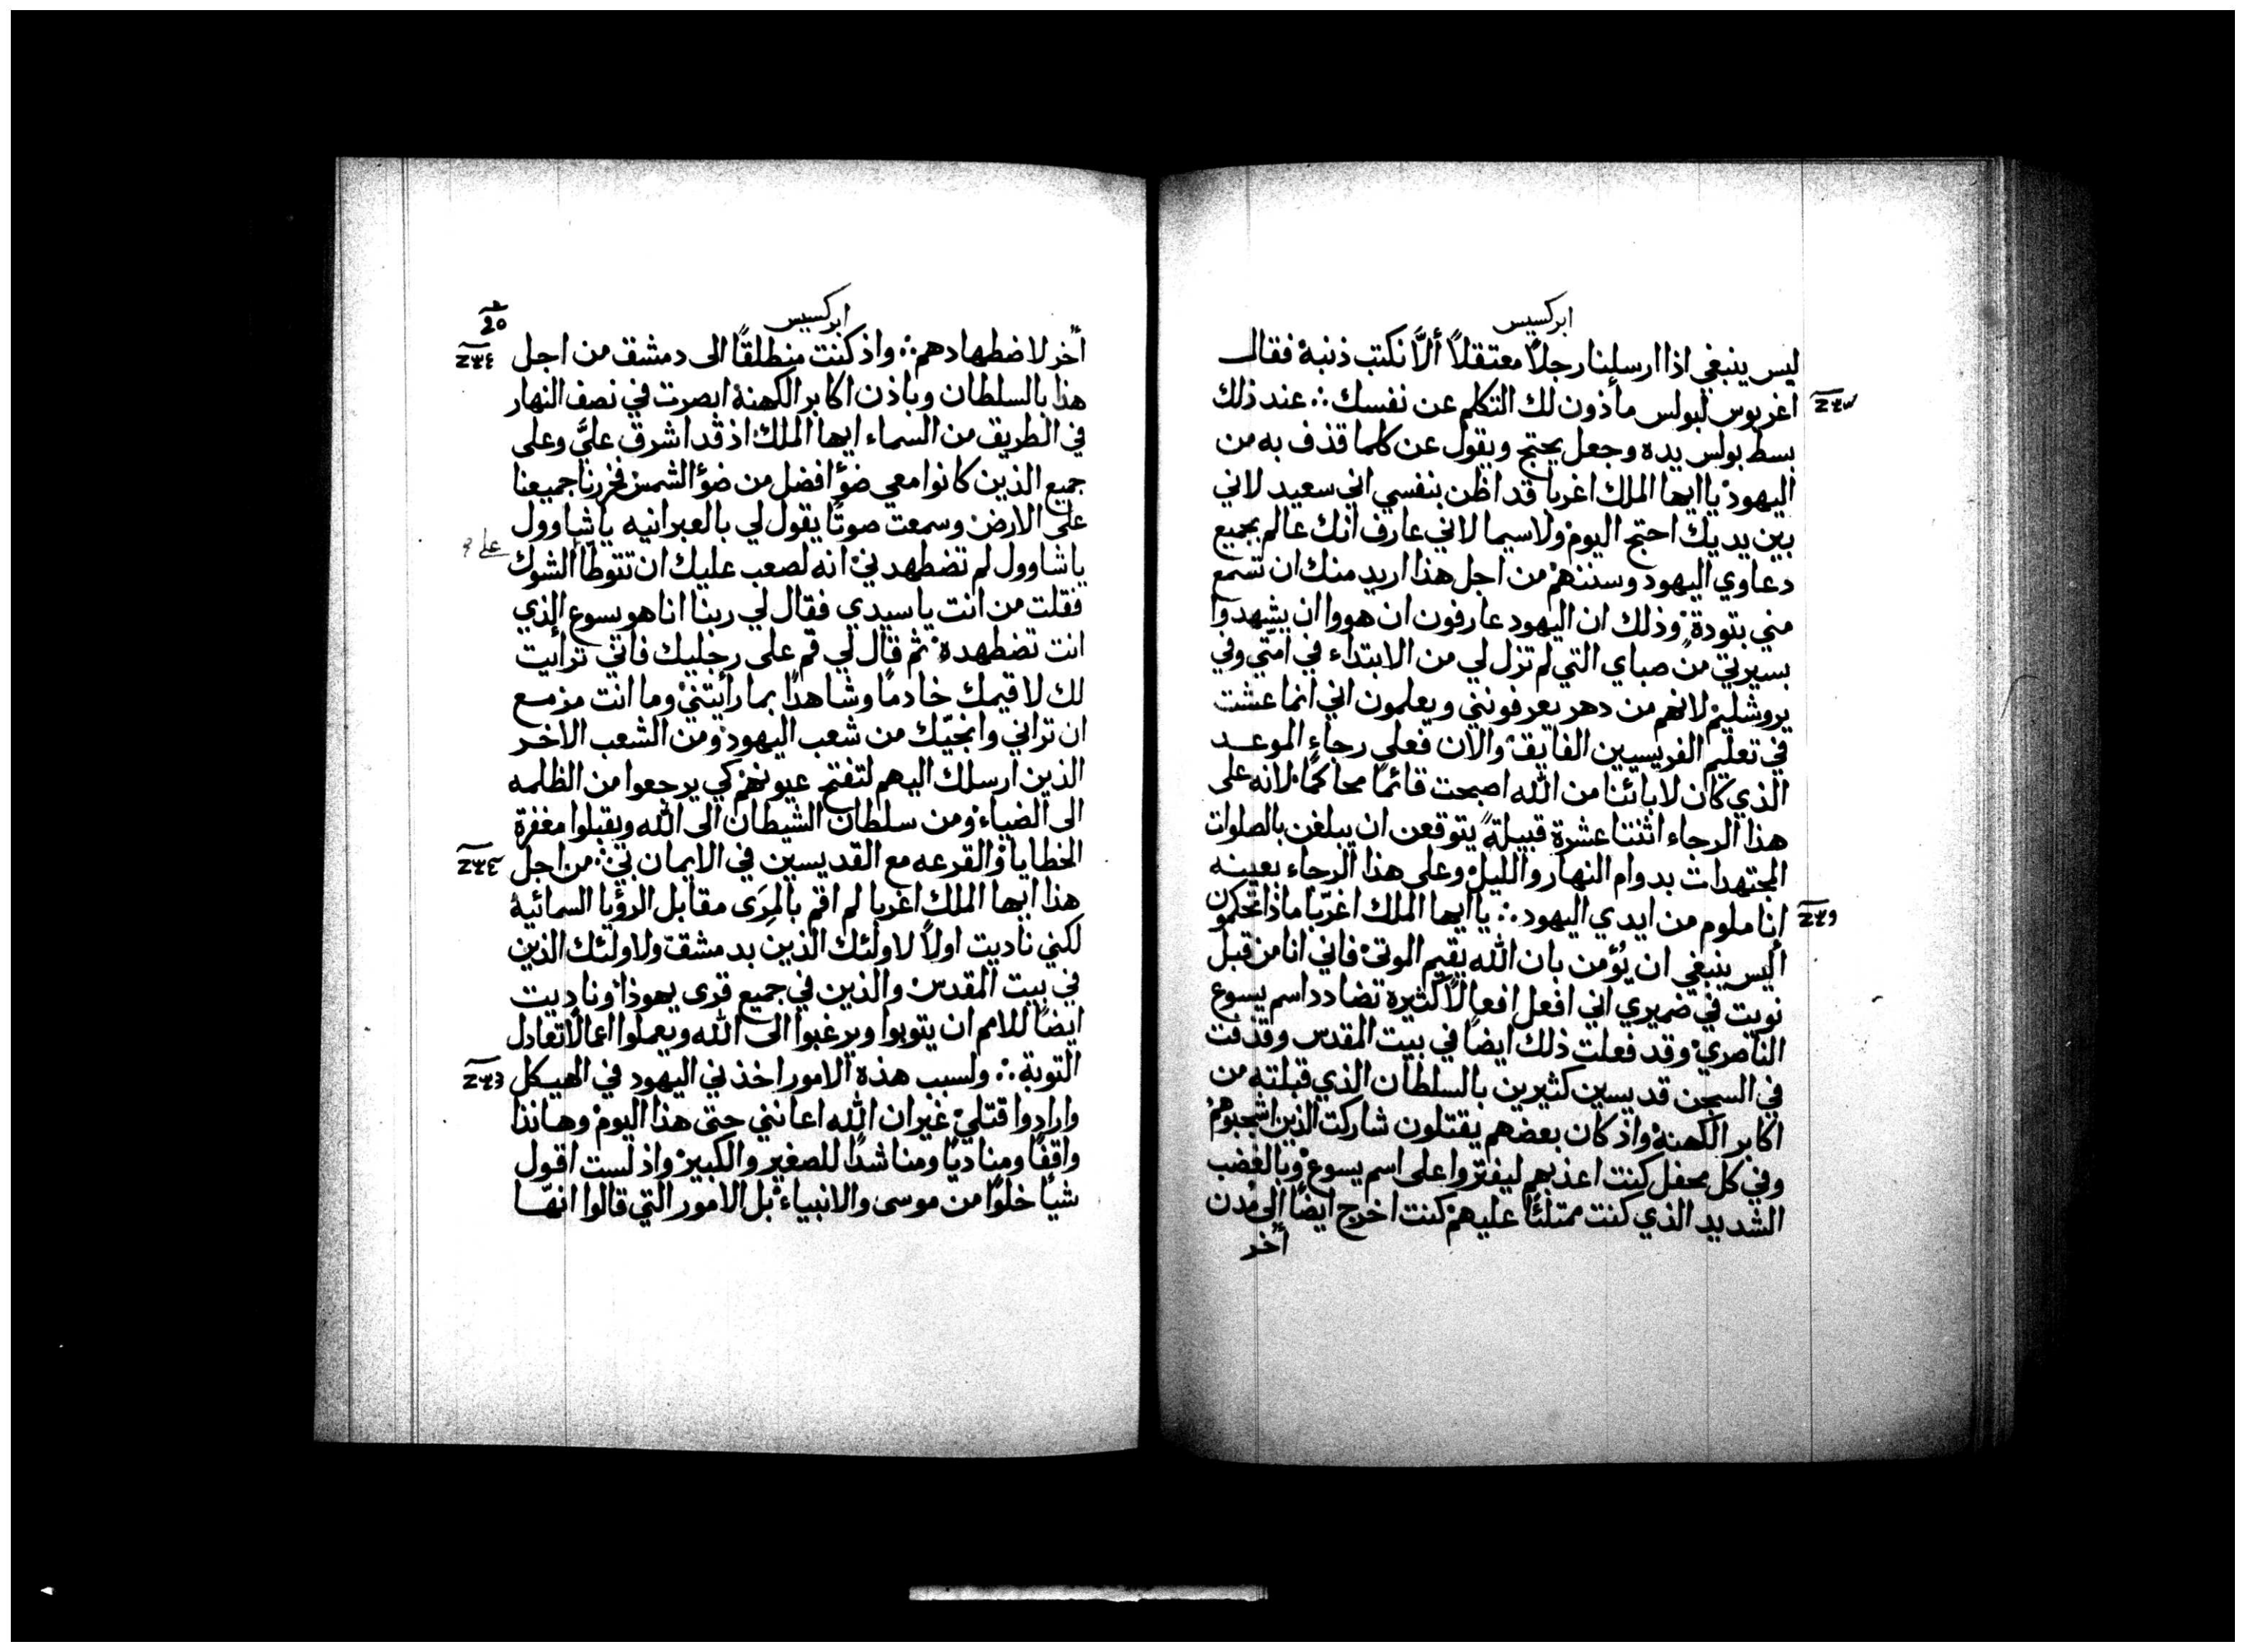 ابركسيس
ليس ينبغي اذا ارسلنا رجلًا معتقلًا ألَّا نكتب ذنبه فقال
اغريوس لبولس مأذون لك التكلم عن نفسك ∴ عند ذلك
بسط بولس يده وجعل يحتج ويقول عن كلما قذف به من
اليهود يا ايها الملك اغربا قد اظن بنفسي اني سعيد لاني
بين يديك احتج اليوم ولاسيما لاني عارف انك عالم بجميع
دعاوي اليهود وسننهم من اجل هذا اريد منك ان تسمع
مني بتودة وذلك ان اليهود عارفون ان هووا ان يشهدوا
بسيرتي من صباي التي لم تزل لي من الابتداء في امّتي وفي
يروشليم لانهم من دهر يعرفونني ويعلمون اني انما عشت
في تعليم الفريسيين الفايق والان فعلى رجاء الموعد
الذي كان لابائنا من الله اصبحت قائمًا محاكمًا لانه على
هذا الرجاء اثنتا عشرة قبيلة يتوقعن ان يبلغن بالصلوات
المجتهدات بدوام النهار والليل وعلى هذا الرجاء بعينه
انا ملوم من ايدي اليهود ∴ يا ايها الملك اغربّا ماذا تحكمون
اليس ينبغي ان يُؤمن بان الله يقيم الموتى فاني انا من قبل
نويت في ضميري اني افعل افعالًا كثيره تضادد اسم يسوع
الناصري وقد فعلت ذلك ايضًا في بيت المقدس وقذفت
في السجن قديسين كثيرين بالسلطان الذي قبلته من
اكابر الكهنة واذ كان بعضهم يقتلون شاركت الذين اشجبوهم
وفي كل محفل كنت اعذبهم ليفتروا على اسم يسوع وبالغضب
الشديد الذي كنت ممتلئًا عليهم كنت اخرج ايضًا الى مُدن
أخر
ابركسيس
أخر لاضطهادهم ∴ واذ كنت منطلقًا الى دمشق من اجل
هذا بالسلطان وباذن اكابر الكهنة ابصرت في نصف النهار
في الطريق من السماء ايها الملك اذ قد اشرق عليَّ وعلى
جميع الذين كانوا معي ضؤ افضل من ضؤ الشمس فخررنا جميعنا
على الارض وسمعت صوتًا يقول لي بالعبرانيه يا شاوول
يا شاوول لم تضطهدني انه لصعب عليك ان تتوطّأ الشوك
فقلت من انت يا سيدي فقال لي ربنا انا هو يسوع الذي
انت تضطهده ثم قال لي قم على رجليك فاني ترايت
لك لاقيمك خادمًا وشاهدًا بما رأيتني وما انت مزمع
ان تراني وانجيّك من شعب اليهود ومن الشعب الاخر
الذين ارسلك اليهم لتفتح عيونهم كي يرجعوا من الظلمه
الى الضياء ومن سلطان الشيطان الى الله ويقبلوا مغفرة
الخطايا والقرعه مع القديسين في الايمان بي ∴ من اجل
هذا ايها الملك اغربا لم اقم بالمِرَى مقابل الرؤيا السمائية
لكني ناديت اولًا لاولئك الذين بدمشق ولاولئك الذين
في بيت المقدس والذين في جميع قرى يهوذا وناديت
ايضًا للامم ان يتوبوا ويرغبوا الى الله ويعملوا اعمالًا تعادل
التوبة ∴ ولسبب هذه الامور اخذني اليهود في الهيكل
وارادوا قتلي غير ان الله اعانني حتى هذا اليوم وهانذا
واقفًا ومناديًا ومناشدًا للصغير والكبير واذ لست اقول
شيًا خلوًا من موسى والانبياء بل الامور التي قالوا انهّا